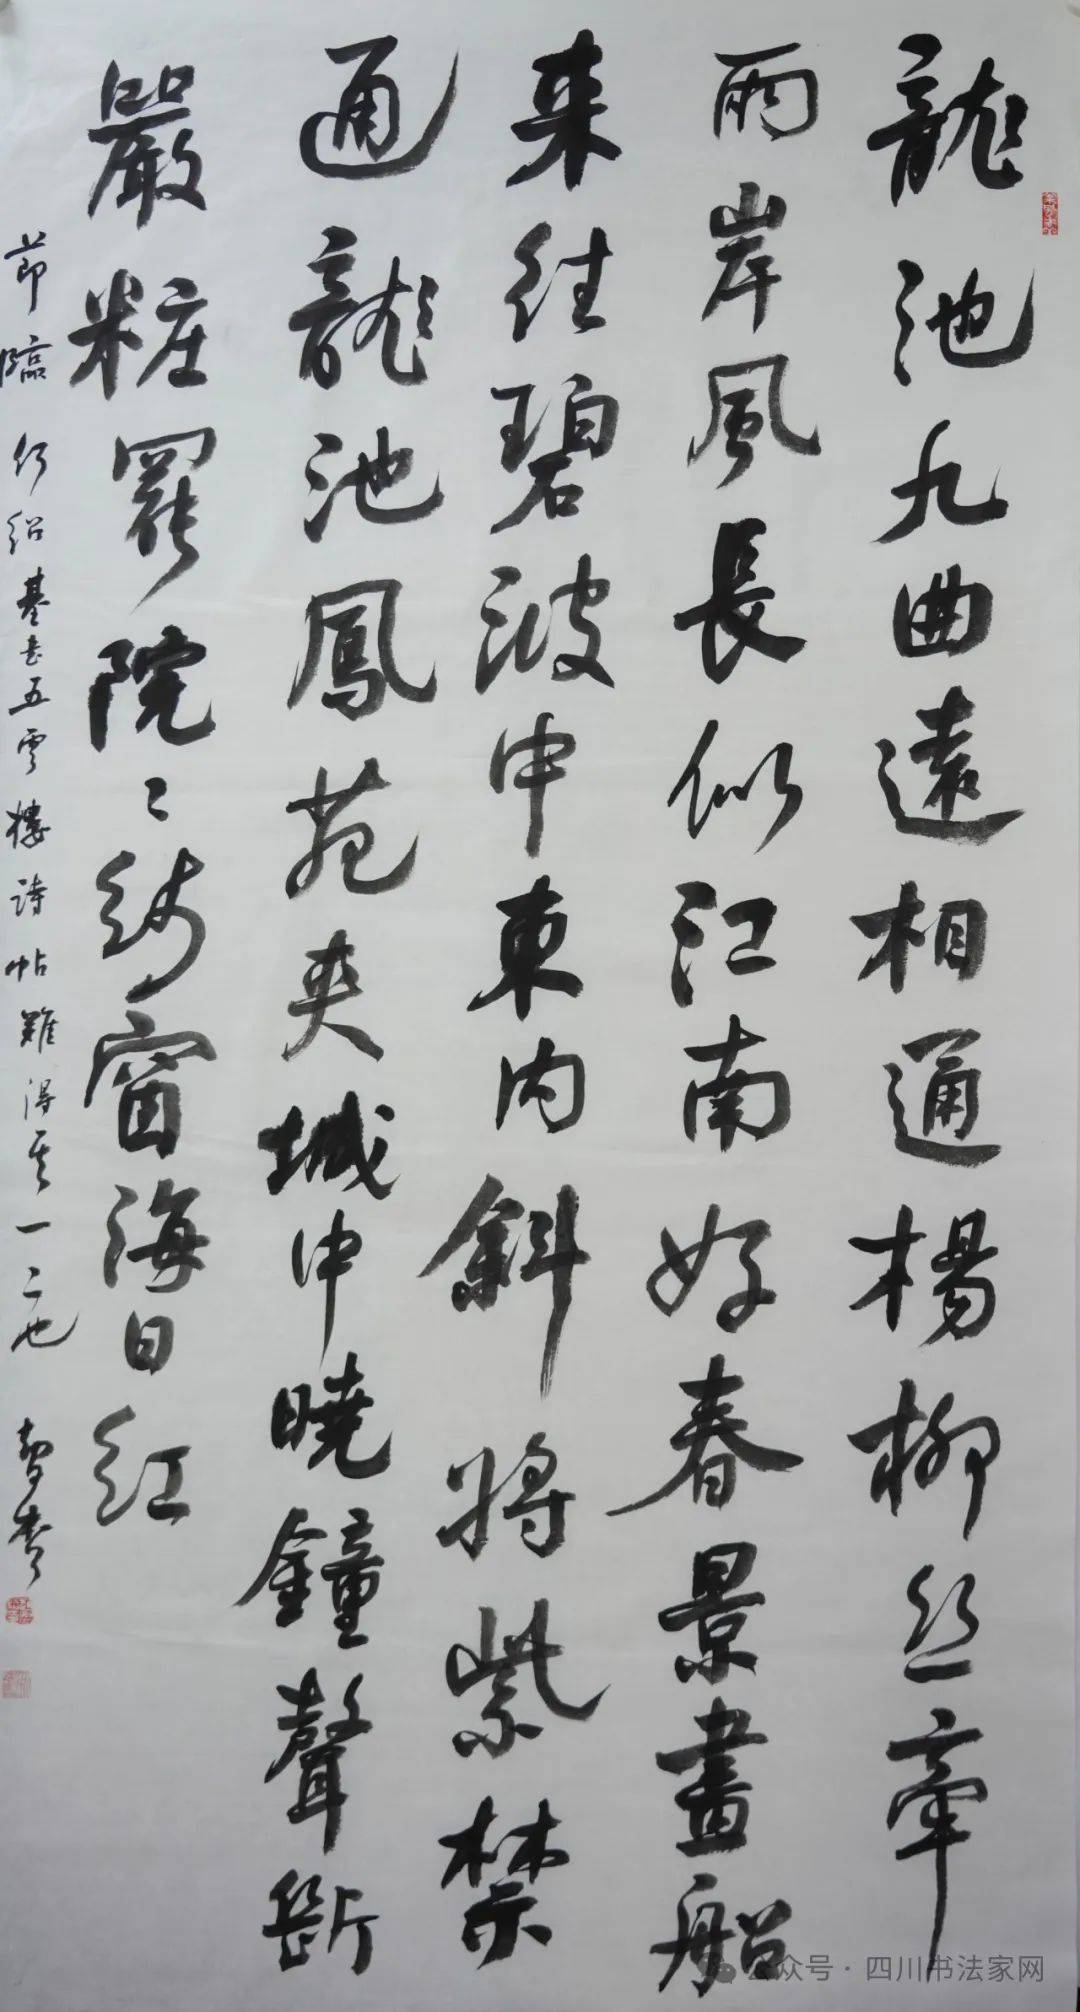 龍池九曲遠相通楊柳絲牽
兩岸風長似江南好春景畫船
來往碧波中東內斜將紫禁
通龍池鳳苑夾城中曉鐘聲斷
嚴粧罷院〻紗窗海日紅
節臨何紹基書五雲樓詩帖難得其一二也
公众号·四川书法家网